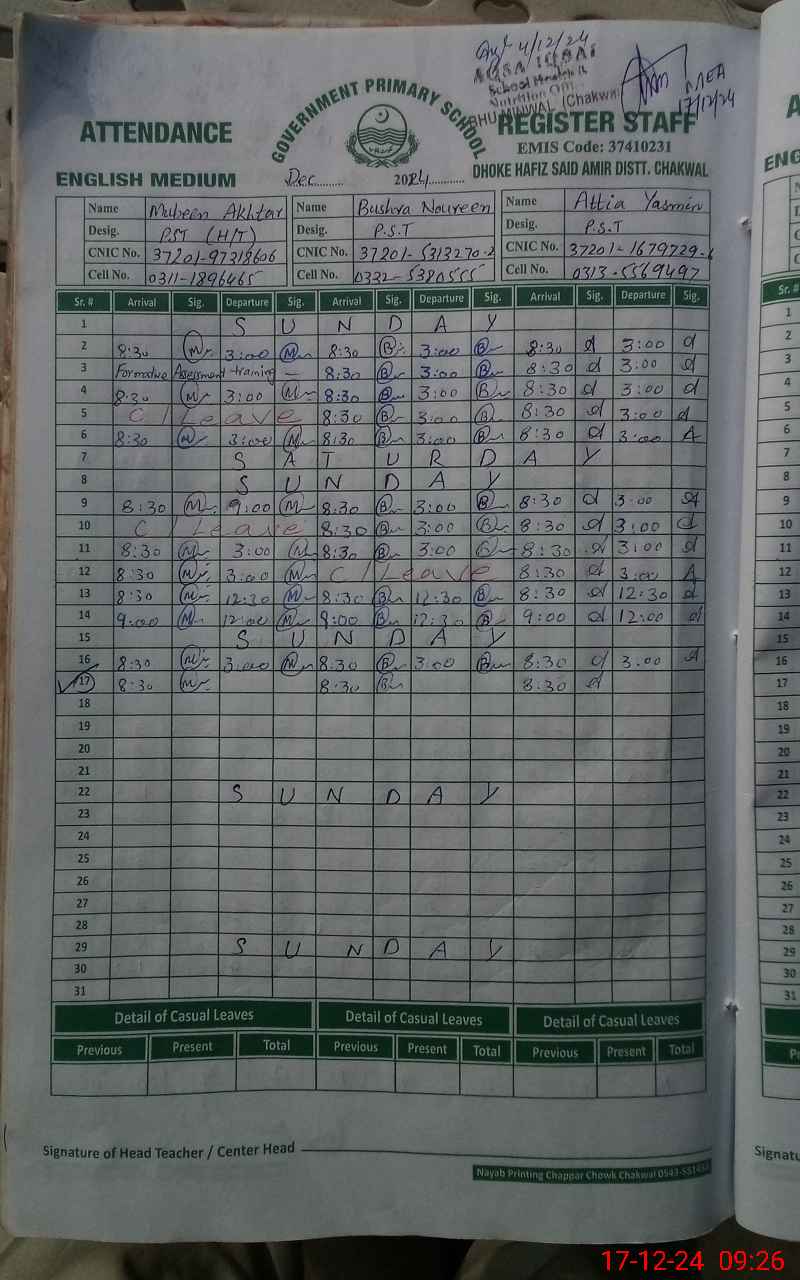 4/12/24
AQSA IQBAL
School Health &
Nutrition Off.
BHUMINWAL (Chakwal
MEA
17/12/24
GOVERNMENT PRIMARY SCHOOL
ATTENDANCE
REGISTER STAFF
EMIS Code: 37410231
ENGLISH MEDIUM
Dec......... 2024............
DHOKE HAFIZ SAID AMIR DISTT. CHAKWAL
Name Mubeen Akhtar Name Bushra Noureen Name Attia Yasmin
Desig. PST (H/T) Desig. P.S.T Desig. P.S.T
CNIC No. 37201-97318606 CNIC No. 37201-5313270-2 CNIC No. 37201-1679729-6
Cell No. 0311-1896465 Cell No. 0332-5380555 Cell No. 0313-5569497
Sr. # Arrival Sig. Departure Sig. Arrival Sig. Departure Sig. Arrival Sig. Departure Sig.
1 S U N D A Y
2 8:30 M 3:00 M 8:30 B 3:00 B 8:30 d 3:00 d
3 Formative Assessment training - 8:30 B 3:00 B 8:30 d 3:00 d
4 8:30 M 3:00 M 8:30 B 3:00 B 8:30 d 3:00 d
5 C / Leave 8:30 B 3:00 B 8:30 d 3:00 d
6 8:30 M 3:00 M 8:30 B 3:00 B 8:30 d 3:00 A
7 S A T U R D A Y
8 S U N D A Y
9 8:30 M 9:00 M 8:30 B 3:00 B 8:30 d 3:00 A
10 C / Leave 8:30 B 3:00 B 8:30 d 3:00 d
11 8:30 M 3:00 M 8:30 B 3:00 B 8:30 d 3:00 d
12 8:30 M 3:00 M C / Leave 8:30 d 3:00 A
13 8:30 M 12:30 M 8:30 B 12:30 B 8:30 d 12:30 d
14 9:00 M 12:00 M 9:00 B 12:30 B 9:00 d 12:00 d
15 S U N D A Y
16 8:30 M 3:00 M 8:30 B 3:00 B 8:30 d 3:00 d
17 8:30 M 8:30 B 8:30 d
18
19
20
21
22 S U N D A Y
23
24
25
26
27
28
29 S U N D A Y
30
31
Detail of Casual Leaves Detail of Casual Leaves Detail of Casual Leaves
Previous Present Total Previous Present Total Previous Present Total
Signature of Head Teacher / Center Head
Nayab Printing Chappar Chowk Chakwal 0543-551
A
ENG
Sr. #
1
2
3
4
5
6
7
8
9
10
11
12
13
14
15
16
17
18
19
20
21
22
23
24
25
26
27
28
29
30
31
Signatu
17-12-24 09:26